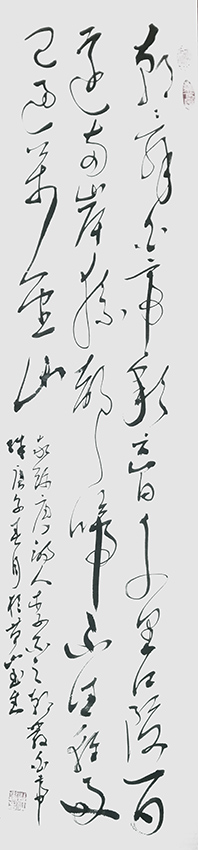 朝辞白帝彩云间千里江陵一日
还两岸猿声啼不住轻舟
已过萬重山
唐诗人李白之朝發白帝
城庚子春月於草堂